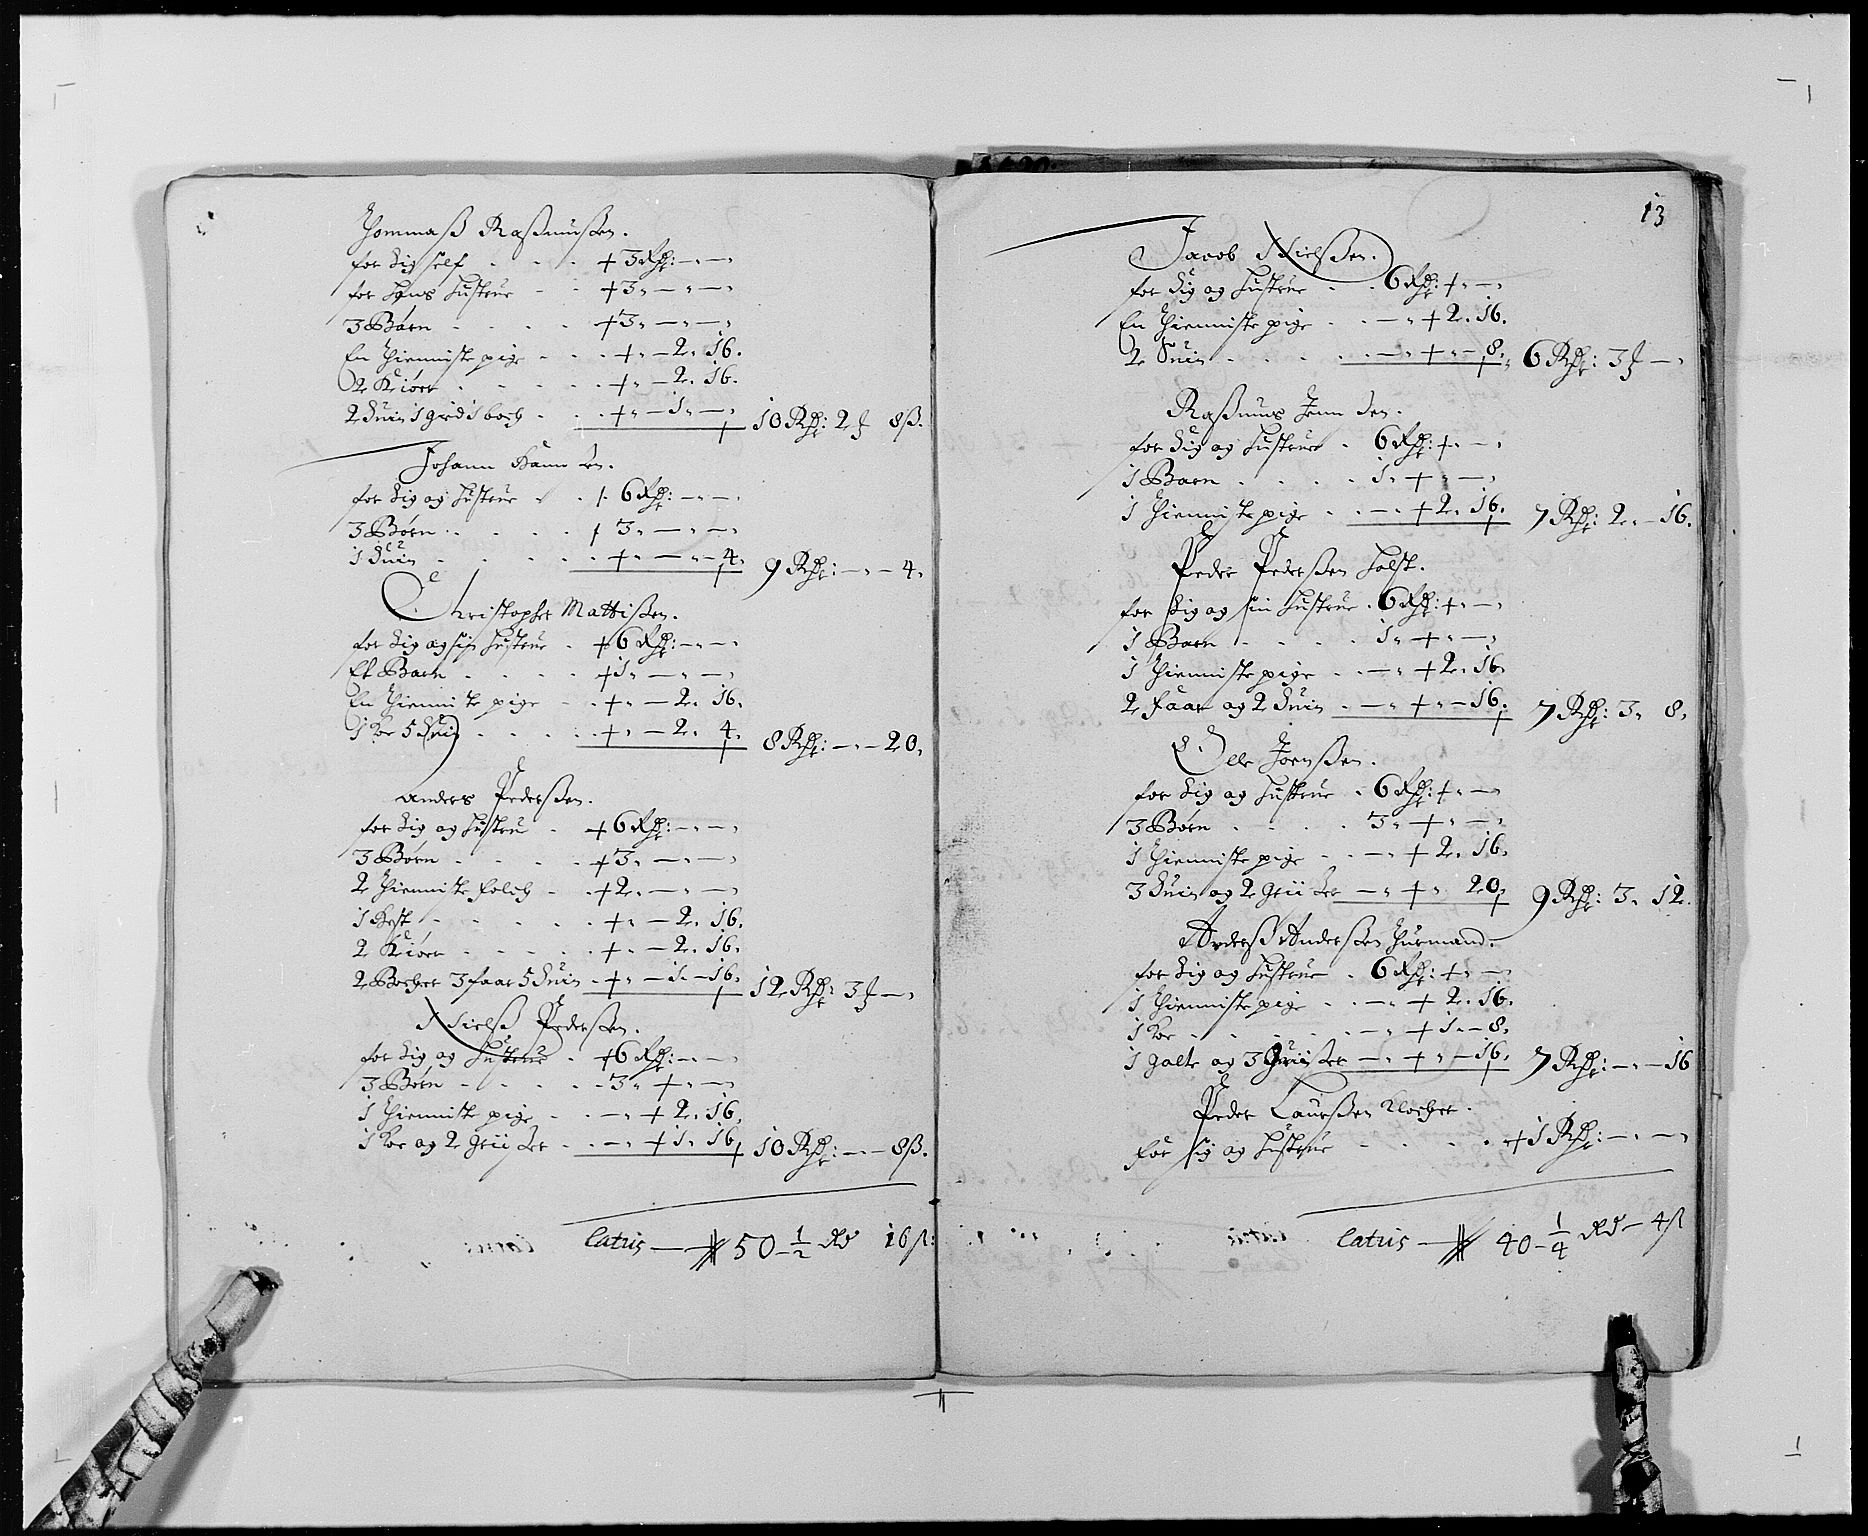 Thommaß Raßmusßen.
for Sig self . . . + 3 Rdr: – „ –
for Hans Hustrue . . + 3 „ – „ –
3 Børn . . . . + 3 „ – „ –
En Thienniste pige . . . + „ – 2 „ 16.
2 Kiører . . . . + „ – 2 „ 16.
2 Suin 1 . . . + „ – 1 „ – 10 Rdr: 2 ƶ 8 ß.
Johann
for Sig og Hustrue . . 6 Rdr: – „ –
3 Børn . . . . 3 „ – „ –
1 Suin . . . . + „ – „ – 4. 9 Rdr: – „ – 4.
Christopher Mattißen.
for Sig og sin Hustrue . + 6 Rdr: – „ –
Et Barn . . . . + 1 „ – „ –
En Thienniste pige . . + „ – 2 „ 16.
1 Koe 5 Suin . . . . + „ – 2 „ 4. 8 Rdr: – „ – 20.
Anders Pederßen.
for Sig og Hustru . + 6 Rdr: – „ –
3 Børn . . . . + 3 „ – „ –
2 Thienniste folch . . + 2 „ – „ –
1 Hest . . . . + „ – 2 „ 16.
2 Kiører . . . . + „ – 2 „ 16.
2 3 faar 5 Suin . + „ – 1 „ – 16. 12 Rdr: 3 ƶ –
Nielß Pederßen.
for Sig og Hustrue . + 6 Rdr: – „ –
3 Børn . . . . 3 „ + „ –
1 Thienniste pige . . – „ + 2 „ 16.
1 Koe og 2 Griißer . . – „ + 1 „ 16. 10 Rdr: – „ – 8 ß.
Latus — 50 – 1/2 Rd 16 ß:
13
Jacob Nielßen.
for Sig og Hustrue . . 6 Rdr: + „ –
En Thienniste pige . . – „ + 2 „ 16.
2 Suin . . . . – „ + „ – 8. 6 Rdr: 3 ƶ –
Raßmus Jennsen.
for Sig og Hustrue . 6 Rdr: + „ –
1 Barn . . . . 1 „ + „ –
1 Thienniste pige . . – „ + 2 „ 16. 7 Rdr: 2 „ – 16.
Peder Pederßen Holst.
for Sig og sin Hustrue . 6 Rdr: + „ –
1 Barn . . . . 1 „ + „ –
1 Thienniste pige . . – „ + 2 „ 16.
2 faar og 2 Suin . – „ + „ – 16. 7 Rdr: 3 „ 8.
Olle Joenßen.
for Sig og Hustrue . 6 Rdr: + „ –
3 Børn . . . . 3 „ + „ –
1 Thienniste pige . . – „ + 2 „ 16.
3 Suin og 2 Griißer – „ + „ 20. 9 Rdr: 3 „ 12.
Anderß Anderßen Huusmand.
for Sig og Hustrue . 6 Rdr: + „ –
1 Thienniste pige . . – „ + 2 „ 16.
1 Koe . . . . – „ + 1 „ – 8.
1 galte og 3 Griißer – „ + „ – 16. 7 Rdr: – „ – 16
Peder Laurßen Klocher.
for sig og Hustrue . . . . + 1 Rdr: – „ –
Latus — 40 – 1/4 Rd – 4 ß